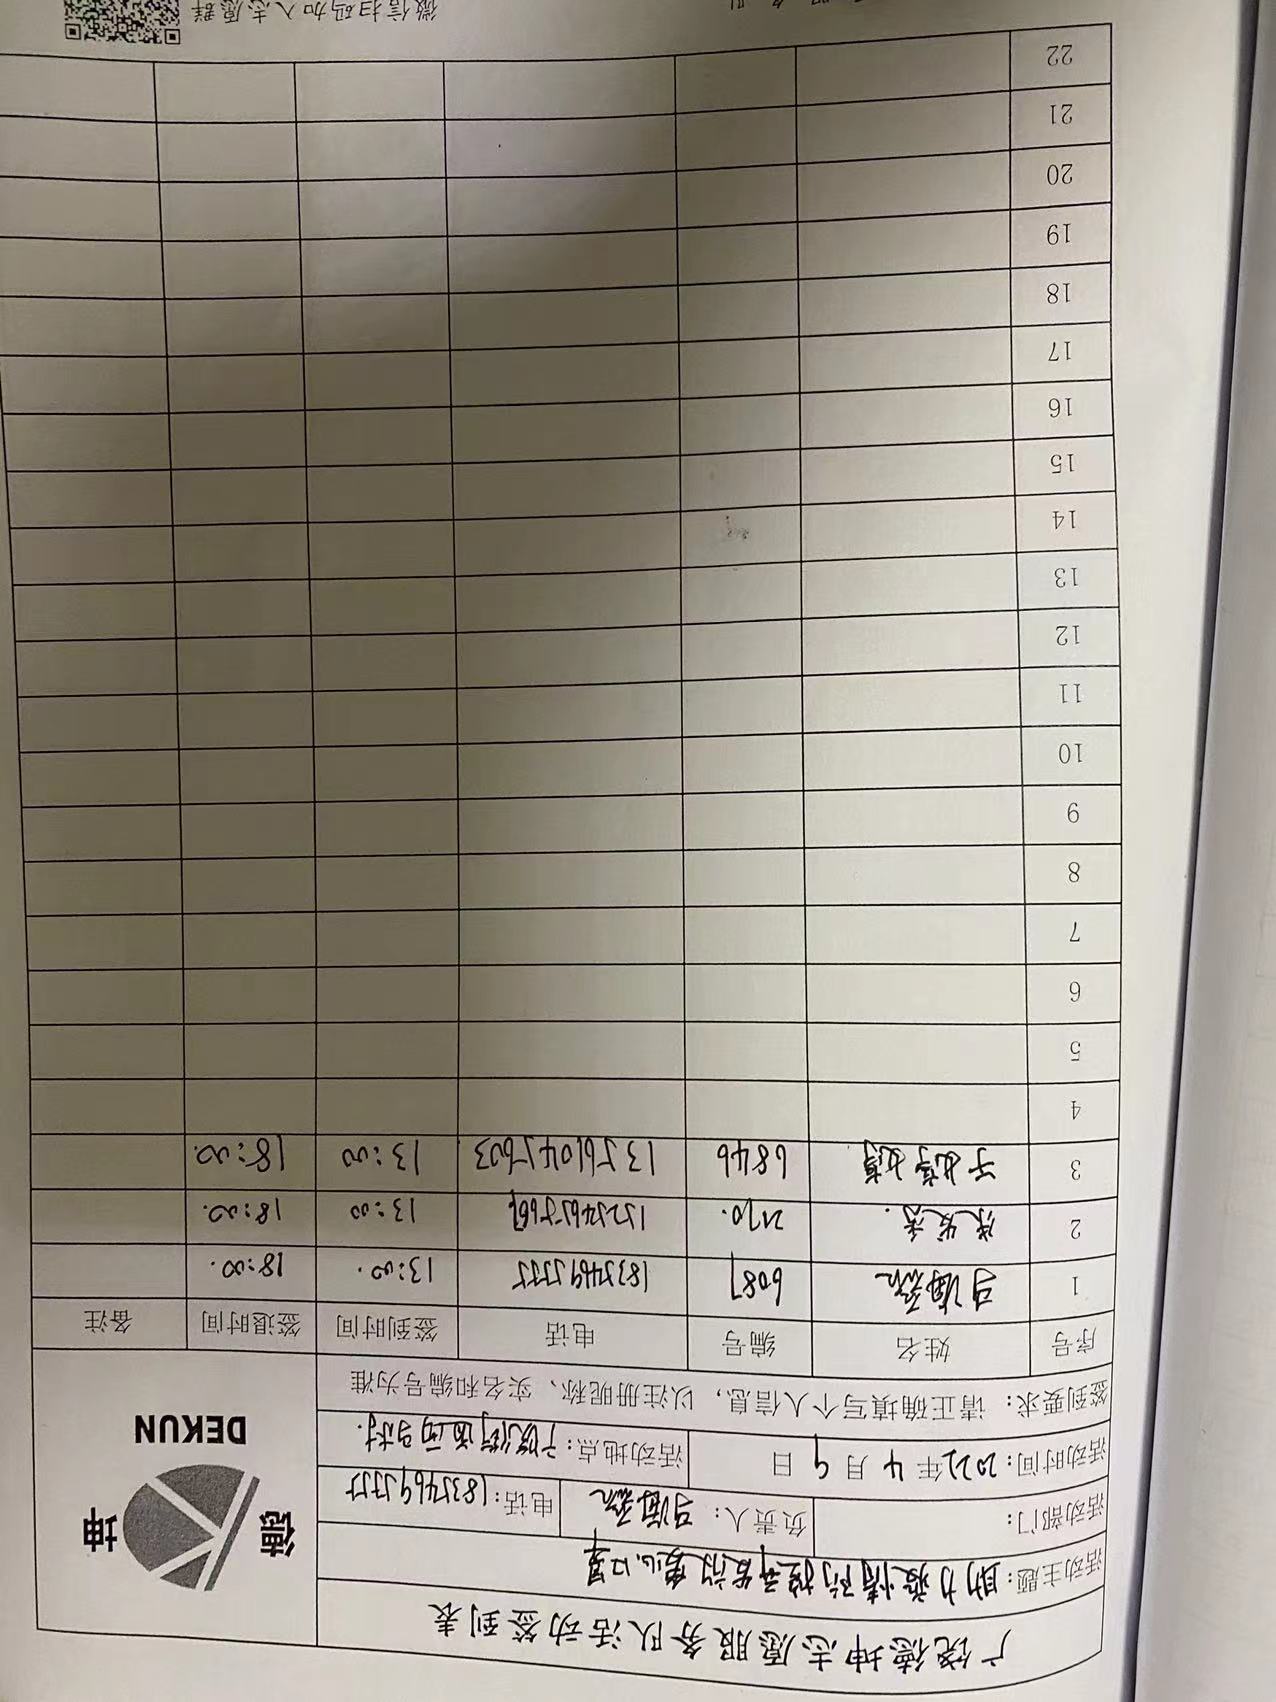 广饶德坤志愿服务队活动签到表
德 坤
DEKUN
活动主题：助力疫情防控 发放爱心口罩
活动部门： 负责人：马海燕 电话：18354695555
活动时间：2022年4月9日 活动地点：
签到要求：请正确填写个人信息，以注册昵称、实名和编号为准
序号 姓名 编号 电话 签到时间 签退时间 备注
1 马海燕 6087 18354695555 13:00. 18:00.
2 2170. 13:00 18:00.
3 6846 13561045603 13:00 18:00.
4
5
6
7
8
9
10
11
12
13
14
15
16
17
18
19
20
21
22
微信扫码加入志愿群